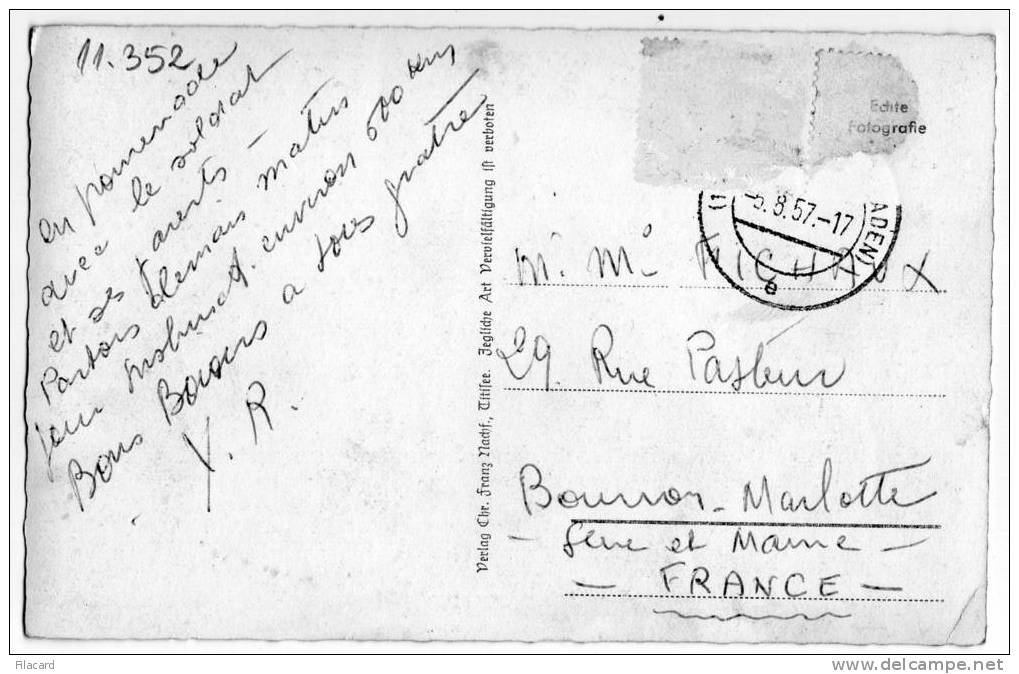 11.352
en promenade
avec le soldat
et ses parents –
Partons demain matin
pour Innsbruck. environ 500 kms
Bons Baisers à tous quatre
Y. R.
Verlag Chr. Franz Nachf., Titisee. Jegliche Art Vervielfältigung ist verboten
Echte
Fotografie
-5.8.57.-17
ADEN)
e
M. Me MICHAUX
29 Rue Pasteur
Bourron-Marlotte
– Seine et Marne –
– FRANCE –
Filacard
delcampe.net